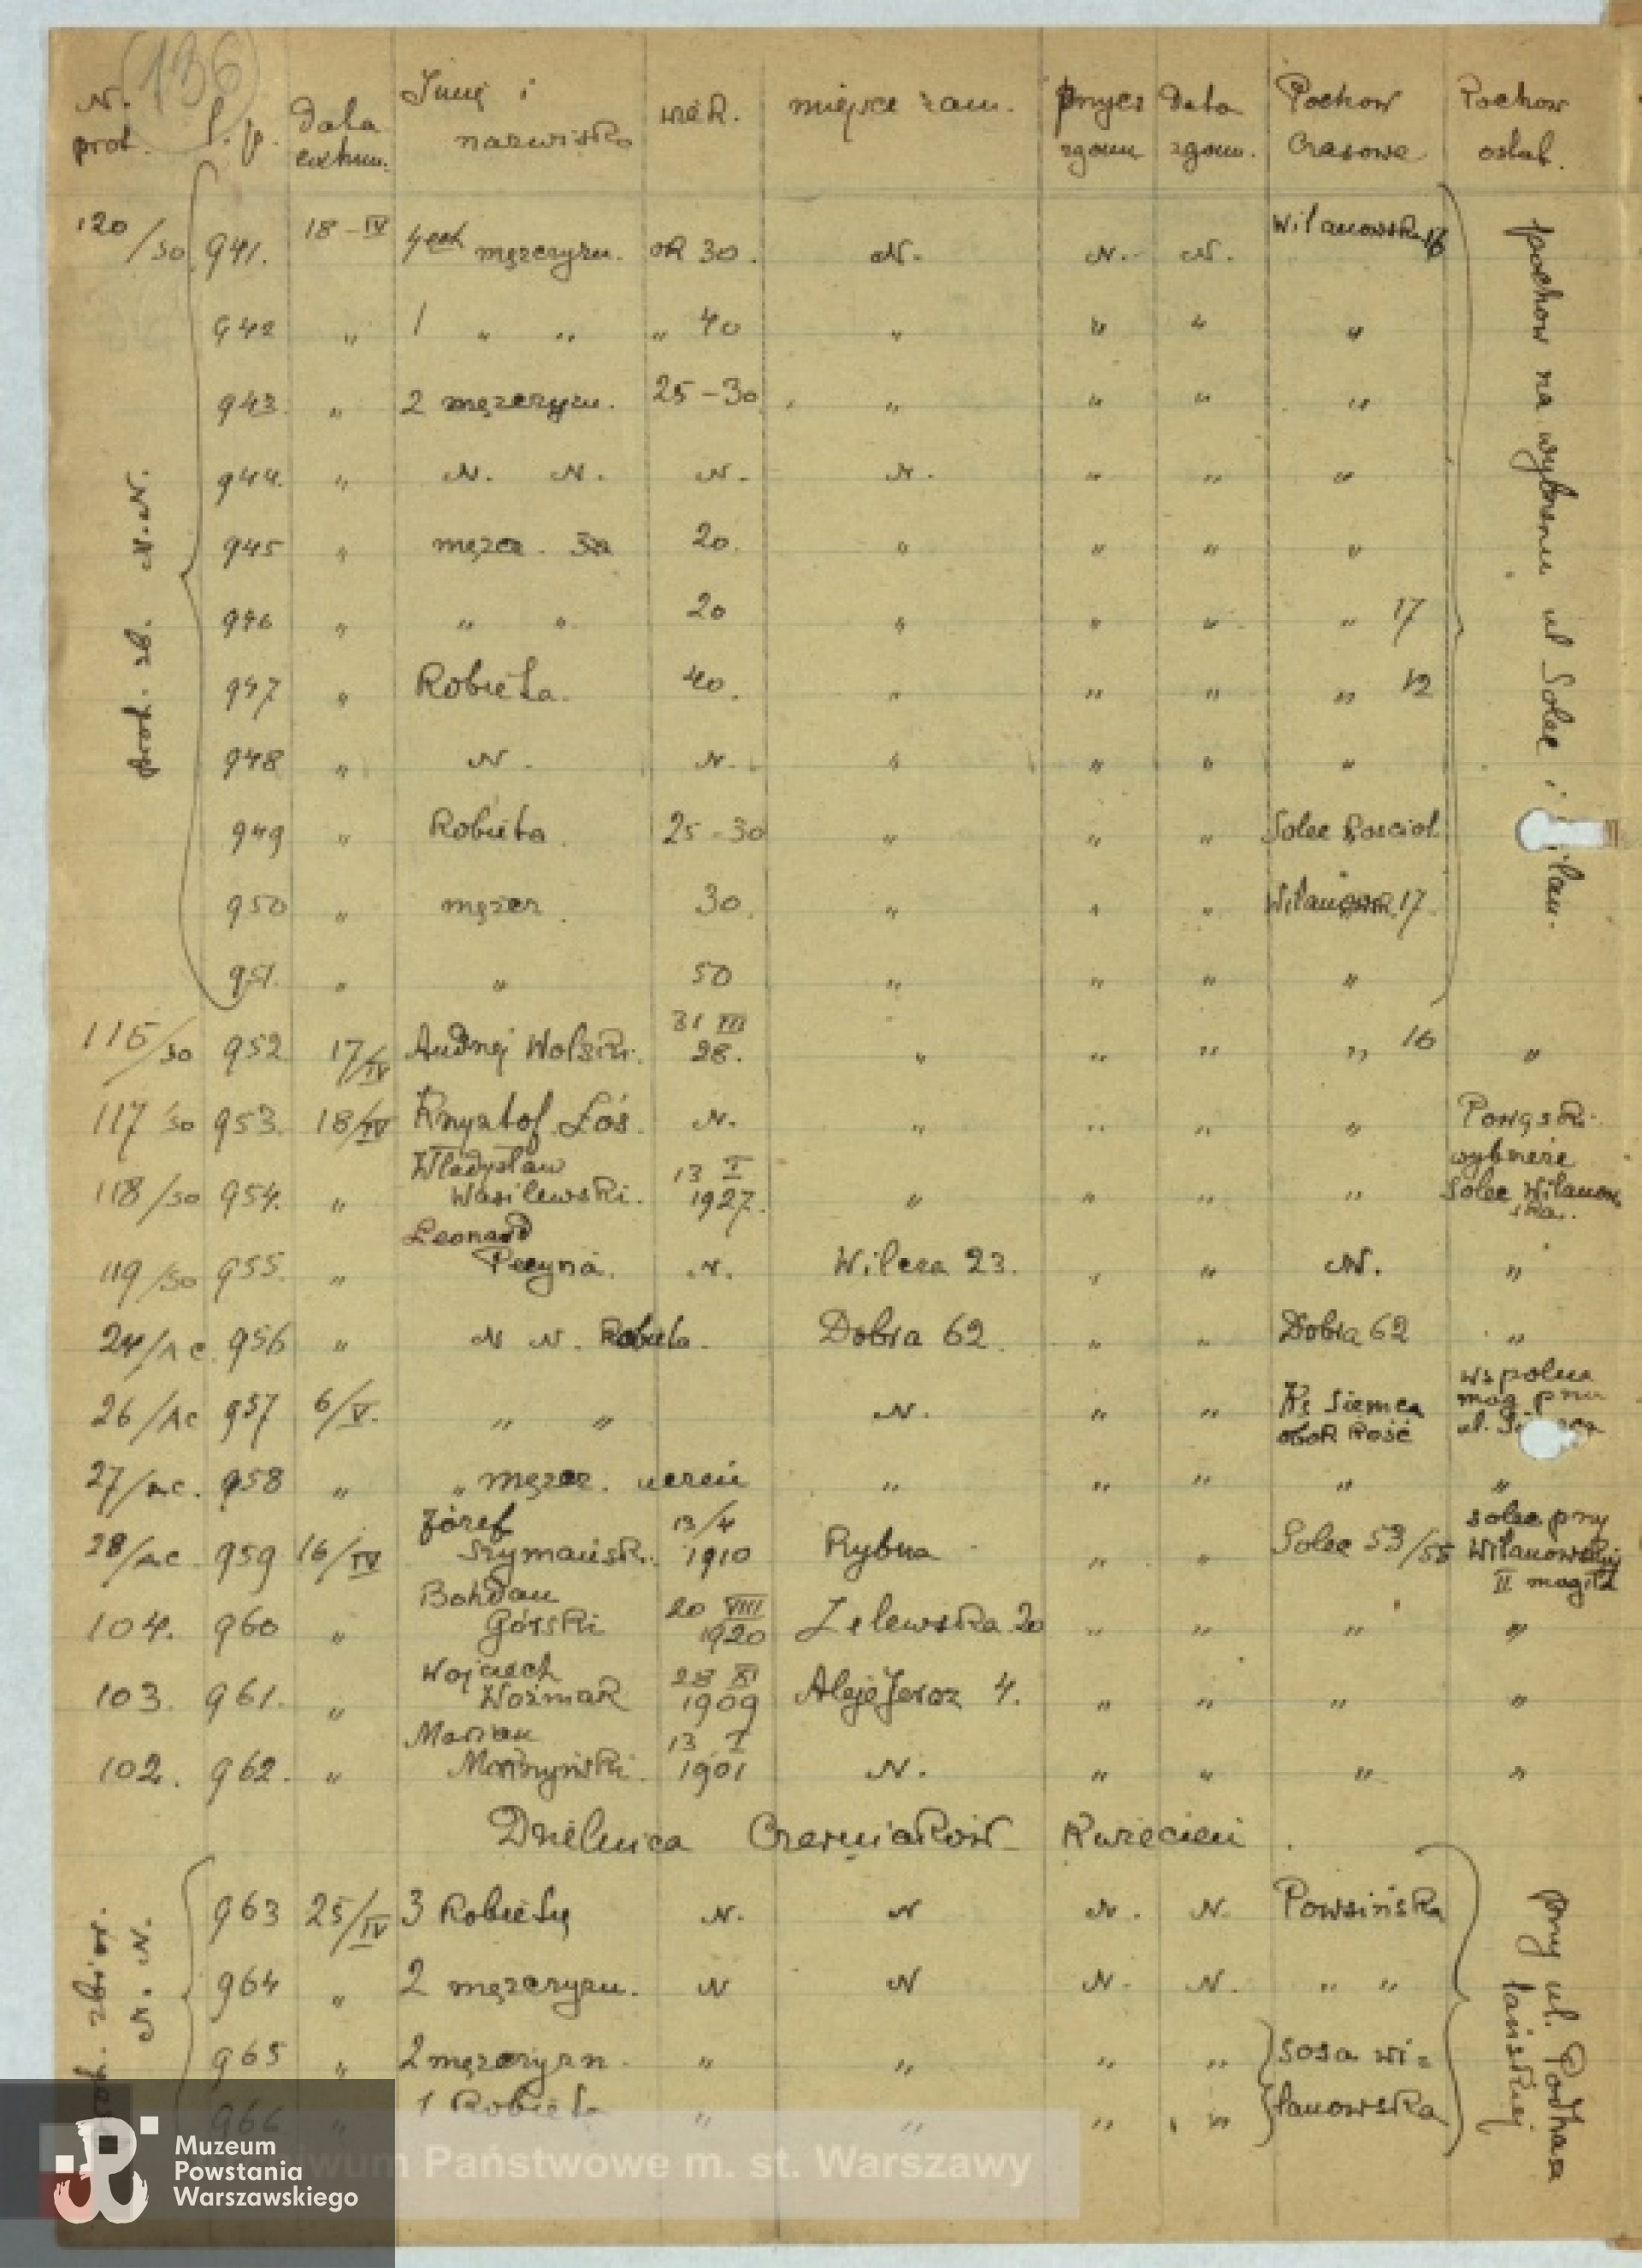 136
N. prot. l. p. data exhum. Imię i nazwisko wiek. miejsce zam. przycz zgonu data zgonu. Pochow czasowe Pochow ostat.
120/30 941. 18-IV 4ech mężczyzn. ok 30. N. N. N. Wilanowska 16
942 " 1 " " " 40 " " " "
943. " 2 mężczyzn. 25-30 " " " "
944. " N. N. N. N. " " "
945 " mężcz. 20. " " " "
946 " " " 20 " " " " 17
947 " Kobieta. 40. " " " " 12
948 " N. N. " " " "
949 " Kobieta. 25-30 " " " Solec Kościoł
950 " mężcz. 30. " " " Wilanowsk. 17.
951. " " 50 " " " "
prot. zb. N.N.
pochow na wybrzeżu ul Solec i
116/30 952 17/IV Andrzej Wolski. 31 III 28. " " " " 16 "
117/30 953. 18/IV Krzysztof Łoś. N. " " " " Powązki.
118/30 954. " Władysław Wasilewski. 13 I 1927. " " " " wybrzeże Solec Wilanowska.
119/30 955. " Leonard Pecyna. N. Wilcza 23. " " N. "
24/Ac. 956 " N N. Kobieta. Dobra 62. " " Dobra 62 "
26/Ac 957 6/V. " " N. " " Ks Siemca obok Kość wspolna mog przu ul.
27/Ac. 958 " " mężcz. " " " " "
28/Ac 959 16/IV Józef Szymańsk. 13/4 1910 Rybna " " Solec 53/55 solec przy Wilanowskiej II mogiła
104. 960 " Bohdan Górski 20 VIII 1920 Zelewska 20 " " " "
103. 961. " Wojciech Woźniak 28 XI 1909 Aleje Jeroz 4. " " " "
102. 962. " Marian 13 I 1901 N. " " " "
Dzielnica Czerniaków Kwiecień
963 25/IV 3 Kobiety N. N N. N. Powsińska
964 " 2 mężczyzn. N N N. N. " "
965 " 2 mężczyzn. " " " " sosa wi=
966 " 1 Kobieta " " " " lanowska
prot. zbior. N. N.
przy ul. Podhalańskiej
Muzeum
Powstania
Warszawskiego
wum Państwowe m. st. Warszawy